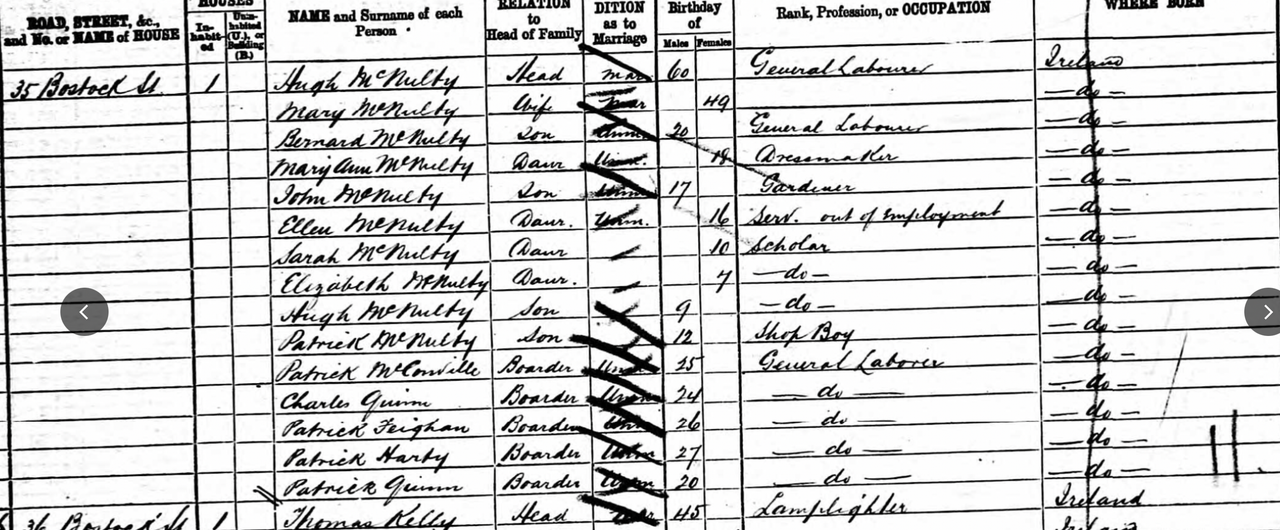 ROAD, STREET, &c., and No. or NAME of HOUSE HOUSES In-habit-ed Unin-habited (U.), or Building (B.) NAME and Surname of each Person RELATION to Head of Family DITION as to Marriage Birthday of Males Females Rank, Profession, or OCCUPATION WHERE BORN
35 Bostock St. 1 Hugh McNulty Head Mar 60 General Labourer Ireland
Mary McNulty Wife Mar 49 — do —
Bernard McNulty Son Unm 20 General Labourer — do —
Mary Ann McNulty Daur Unm. 18 Dressmaker — do —
John McNulty Son Unm 17 Gardener — do —
Ellen McNulty Daur. Unm. 16 Serv. out of Employment — do —
Sarah McNulty Daur 10 Scholar — do —
Elizabeth McNulty Daur. 7 — do — — do —
Hugh McNulty Son 9 — do — — do —
Patrick McNulty Son 12 Shop Boy — do —
Patrick McConville Boarder Unm 25 General Laborer — do —
Charles Quinn Boarder Unm 24 — do — — do —
Patrick Feighan Boarder Unm 26 — do — — do —
Patrick Harty Boarder Unm 27 — do — — do —
Patrick Quinn Boarder Unm 20 — do — — do —
36 Bostock St 1 Thomas Kelly Head 45 Lamplighter Ireland
Ireland